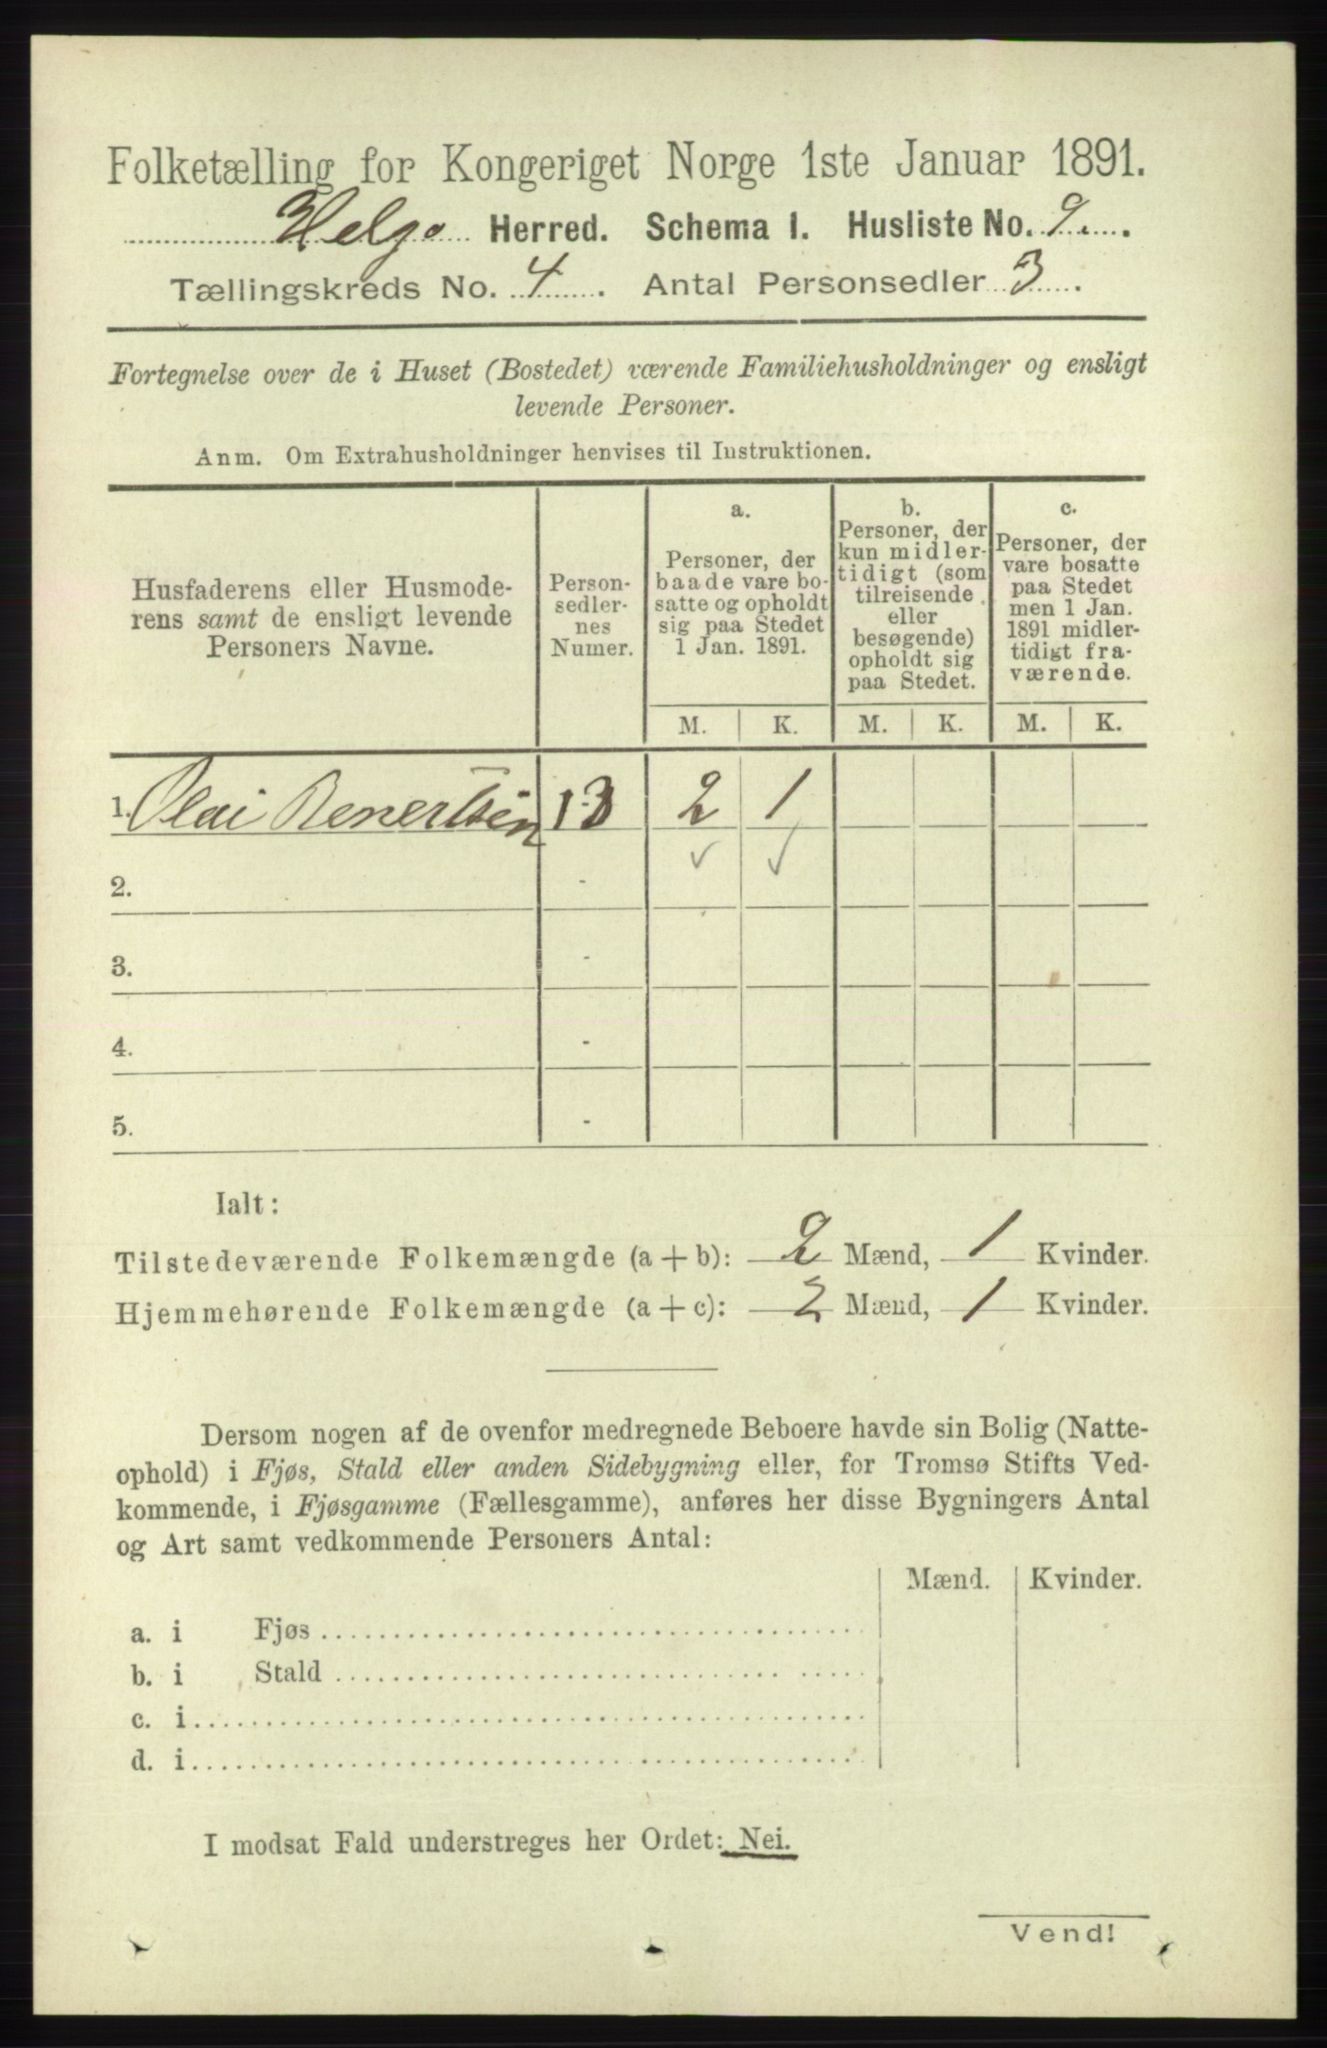 Folketælling for Kongeriget Norge 1ste Januar 1891.
Helgø Herred. Schema I. Husliste No. 9.
Tællingskreds No. 4. Antal Personsedler 3.
Fortegnelse over de i Huset (Bostedet) værende Familiehusholdninger og ensligt
levende Personer.
Anm. Om Extrahusholdninger henvises til Instruktionen.
Husfaderens eller Husmode-
rens samt de ensligt levende
Personers Navne.
Person-
sedler-
nes
Numer.
a.
Personer, der
baade vare bo-
satte og opholdt
sig paa Stedet
1 Jan. 1891.
b.
Personer, der
kun midler-
tidigt (som
tilreisende
eller
besøgende)
opholdt sig
paa Stedet.
c.
Personer, der
vare bosatte
paa Stedet
men 1 Jan.
1891 midler-
tidigt fra-
værende.
M. K. M. K. M. K.
1. Olai Renertsen 1-3 2 1
2. -
3. -
4. -
5. -
Ialt:
Tilstedeværende Folkemængde (a + b): 2 Mænd, 1 Kvinder.
Hjemmehørende Folkemængde (a + c): 2 Mænd, 1 Kvinder.
Dersom nogen af de ovenfor medregnede Beboere havde sin Bolig (Natte-
ophold) i Fjøs, Stald eller anden Sidebygning eller, for Tromsø Stifts Ved-
kommende, i Fjøsgamme (Fællesgamme), anføres her disse Bygningers Antal
og Art samt vedkommende Personers Antal:
Mænd. Kvinder.
a. i Fjøs
b. i Stald
c. i
d. i
I modsat Fald understreges her Ordet: Nei.
Vend!